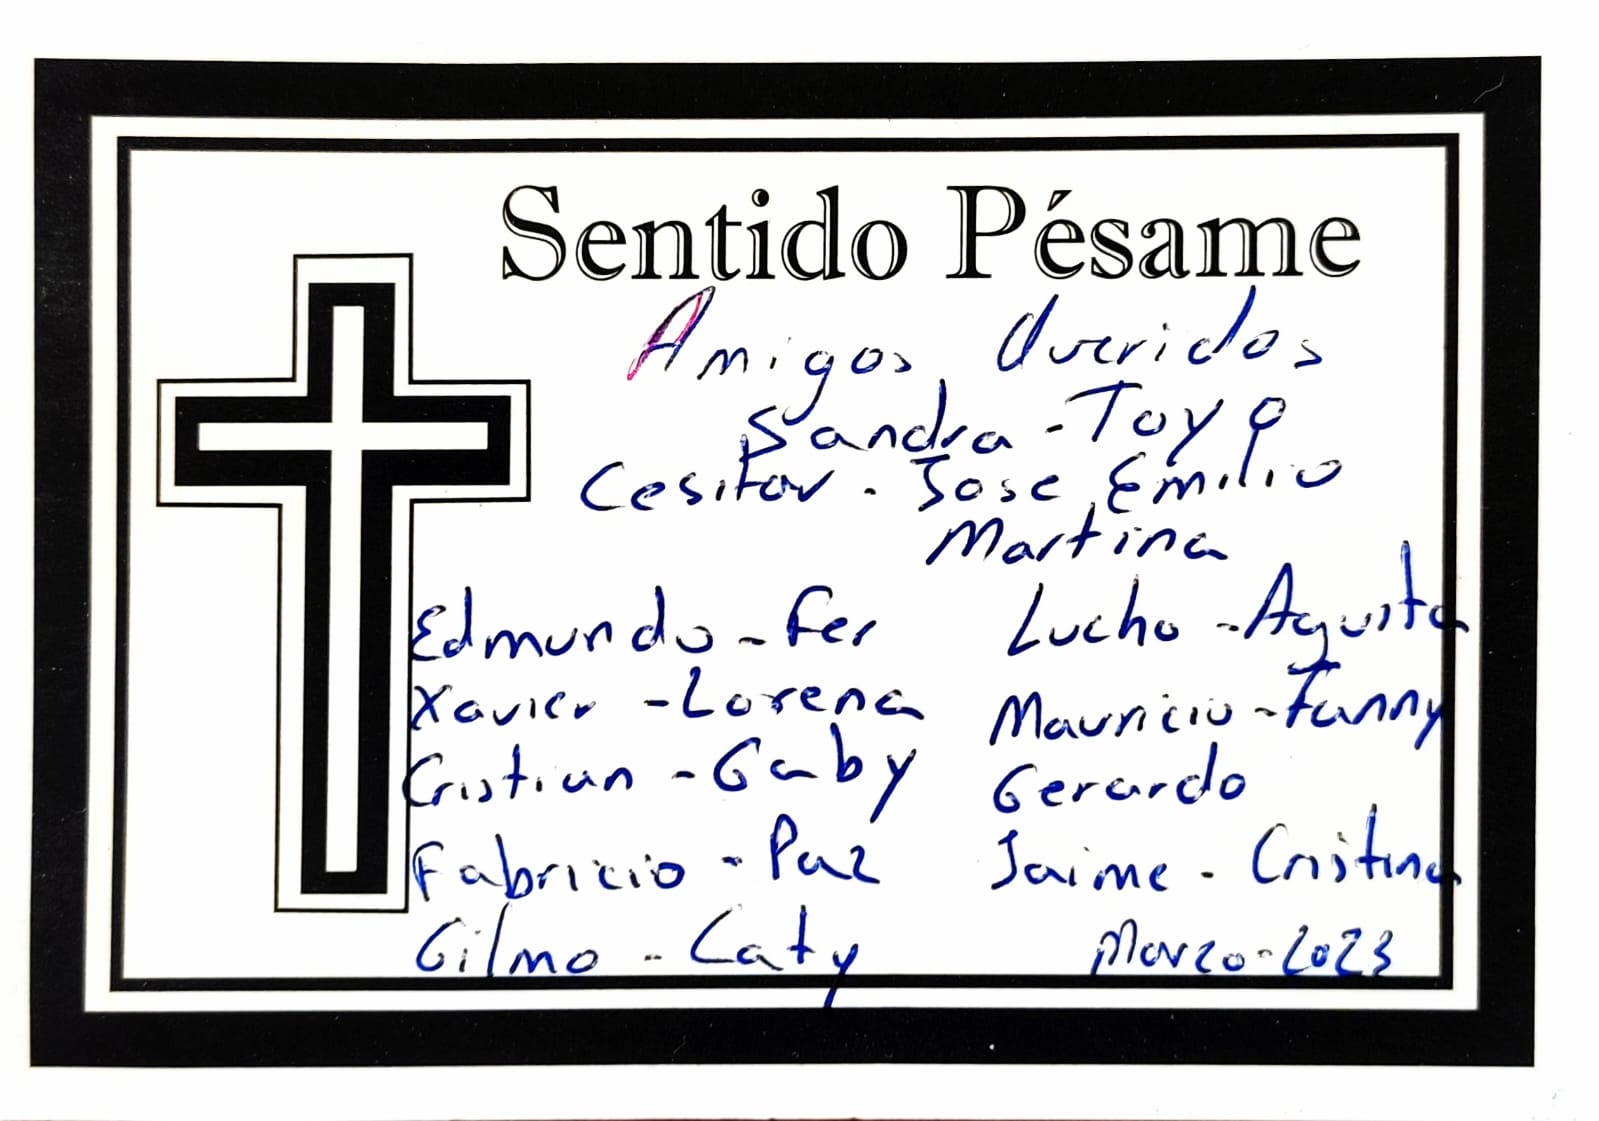 Sentido Pésame
Amigos Queridos
Sandra - Toyo
Cesitar - Jose Emilio
Martina
Edmundo - Fer
Lucho - Aguita
Xavier - Lorena
Mauricio - Fanny
Cristian - Gaby
Gerardo
Fabricio - Paz
Jaime - Cristina
Gilmo - Caty
Marzo - 2023